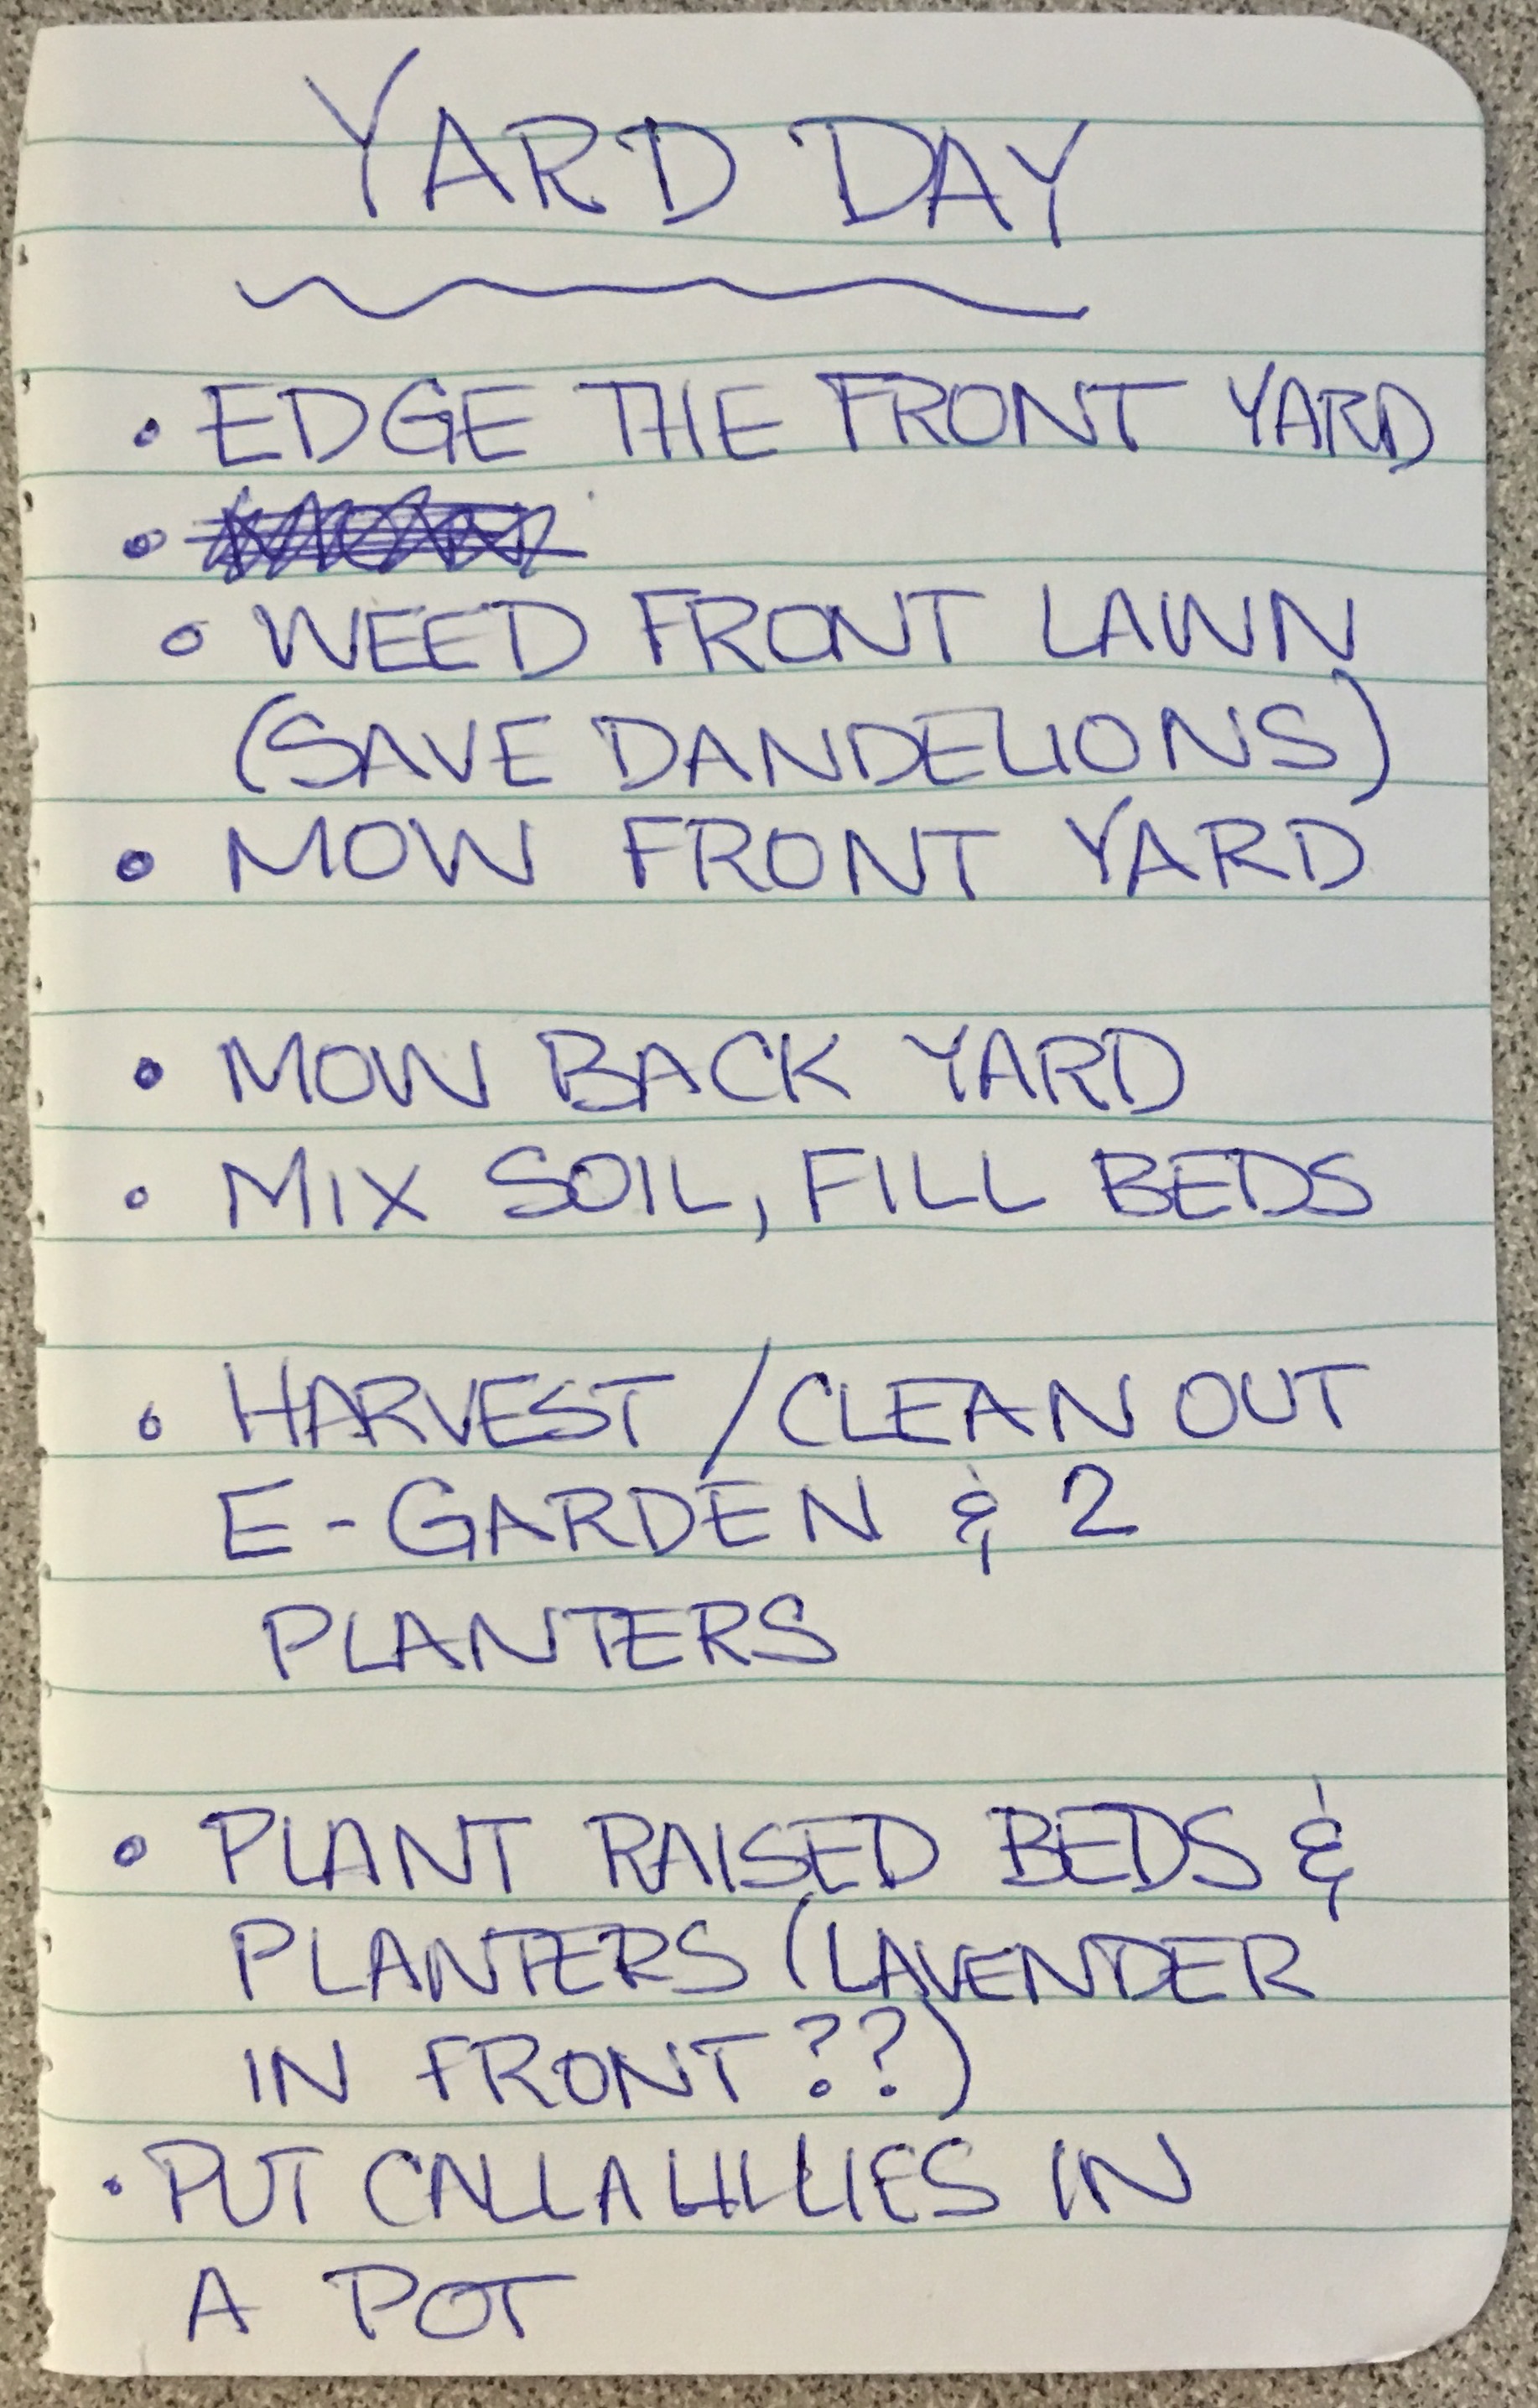 YARD DAY
• EDGE THE FRONT YARD
•
• WEED FRONT LAWN
(SAVE DANDELIONS)
• MOW FRONT YARD
• MOW BACK YARD
• MIX SOIL, FILL BEDS
• HARVEST / CLEAN OUT
E-GARDEN & 2
PLANTERS
• PLANT RAISED BEDS &
PLANTERS (LAVENDER
IN FRONT ??)
• PUT CALLA LILLIES IN
A POT